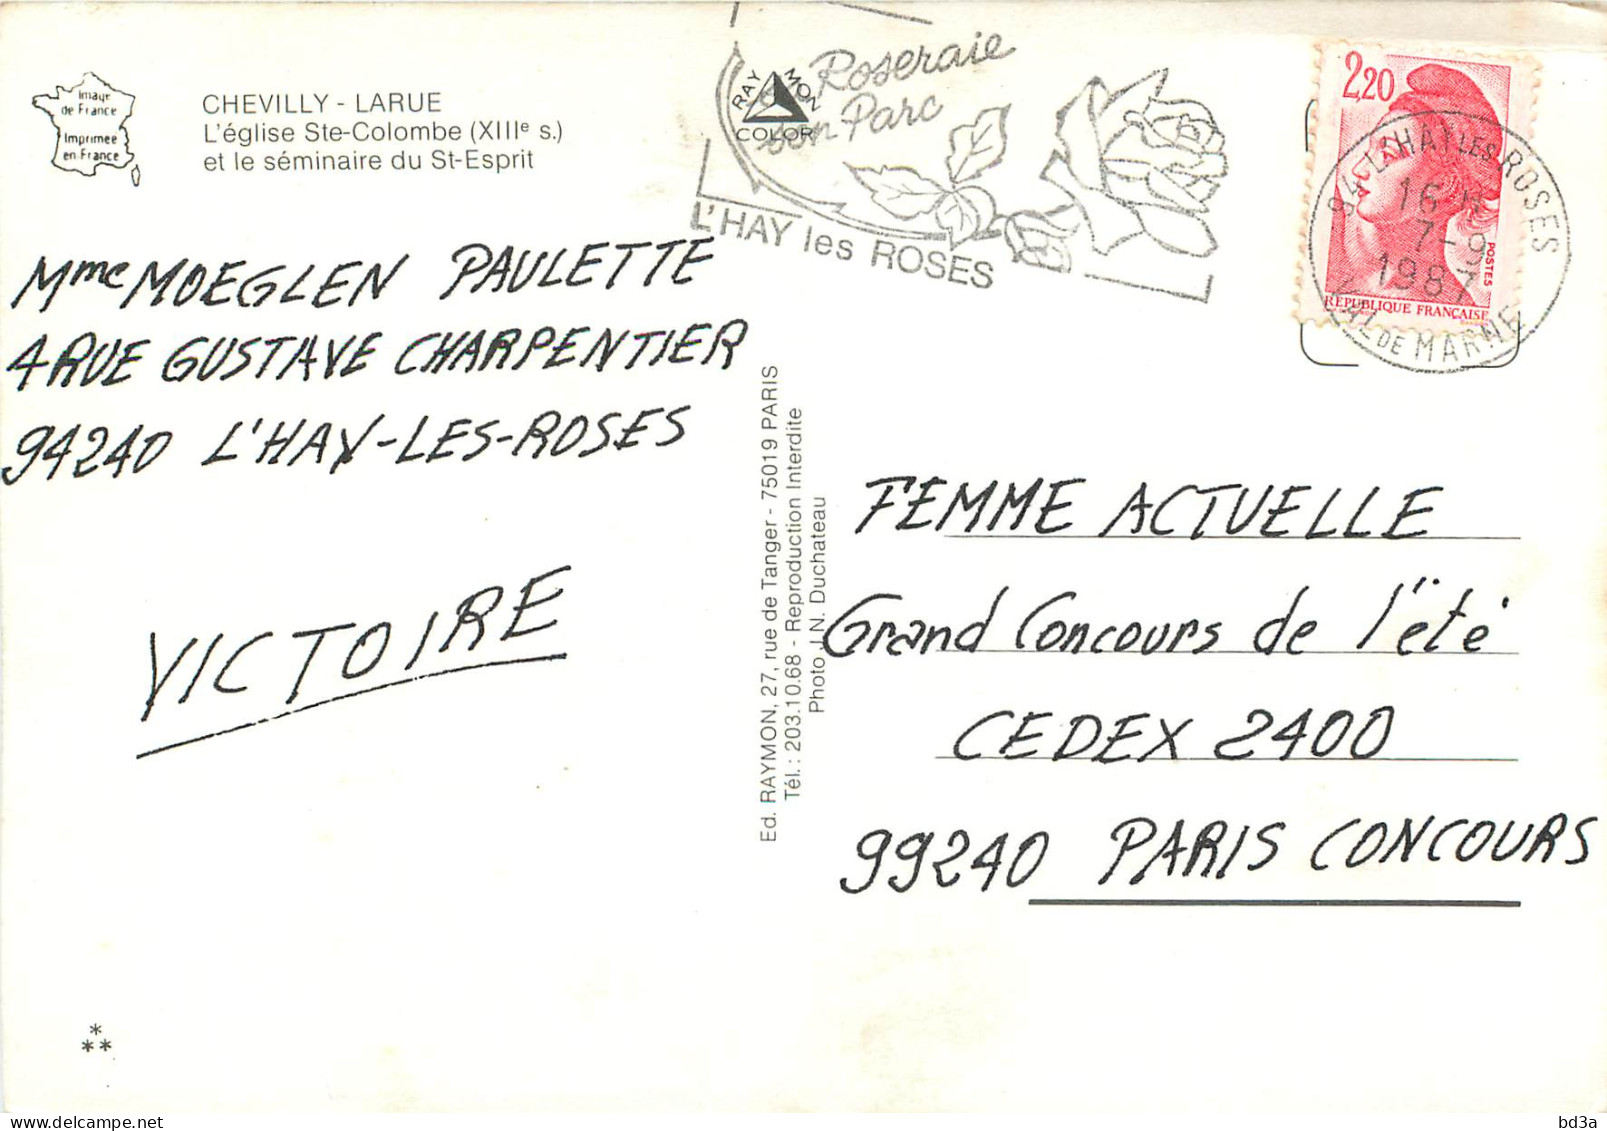 Image
de France
Imprimée
en France
CHEVILLY - LARUE
L'église Ste-Colombe (XIIIe s.)
et le séminaire du St-Esprit
RAYMON
COLOR
Roseraie
son Parc
L'HAY les ROSES
2,20
POSTES
REPUBLIQUE FRANÇAISE
94 L'HAY LES ROSES
16 H
7-9
1987
VAL DE MARNE
Mme MOEGLEN PAULETTE
4 RUE GUSTAVE CHARPENTIER
94240 L'HAY-LES-ROSES
VICTOIRE
Ed. RAYMON, 27, rue de Tanger - 75019 PARIS
Tél.: 203.10.68 - Reproduction Interdite
Photo J.N. Duchateau
FEMME ACTUELLE
Grand Concours de l'été
CEDEX 2400
99240 PARIS CONCOURS
*
**
bd3a